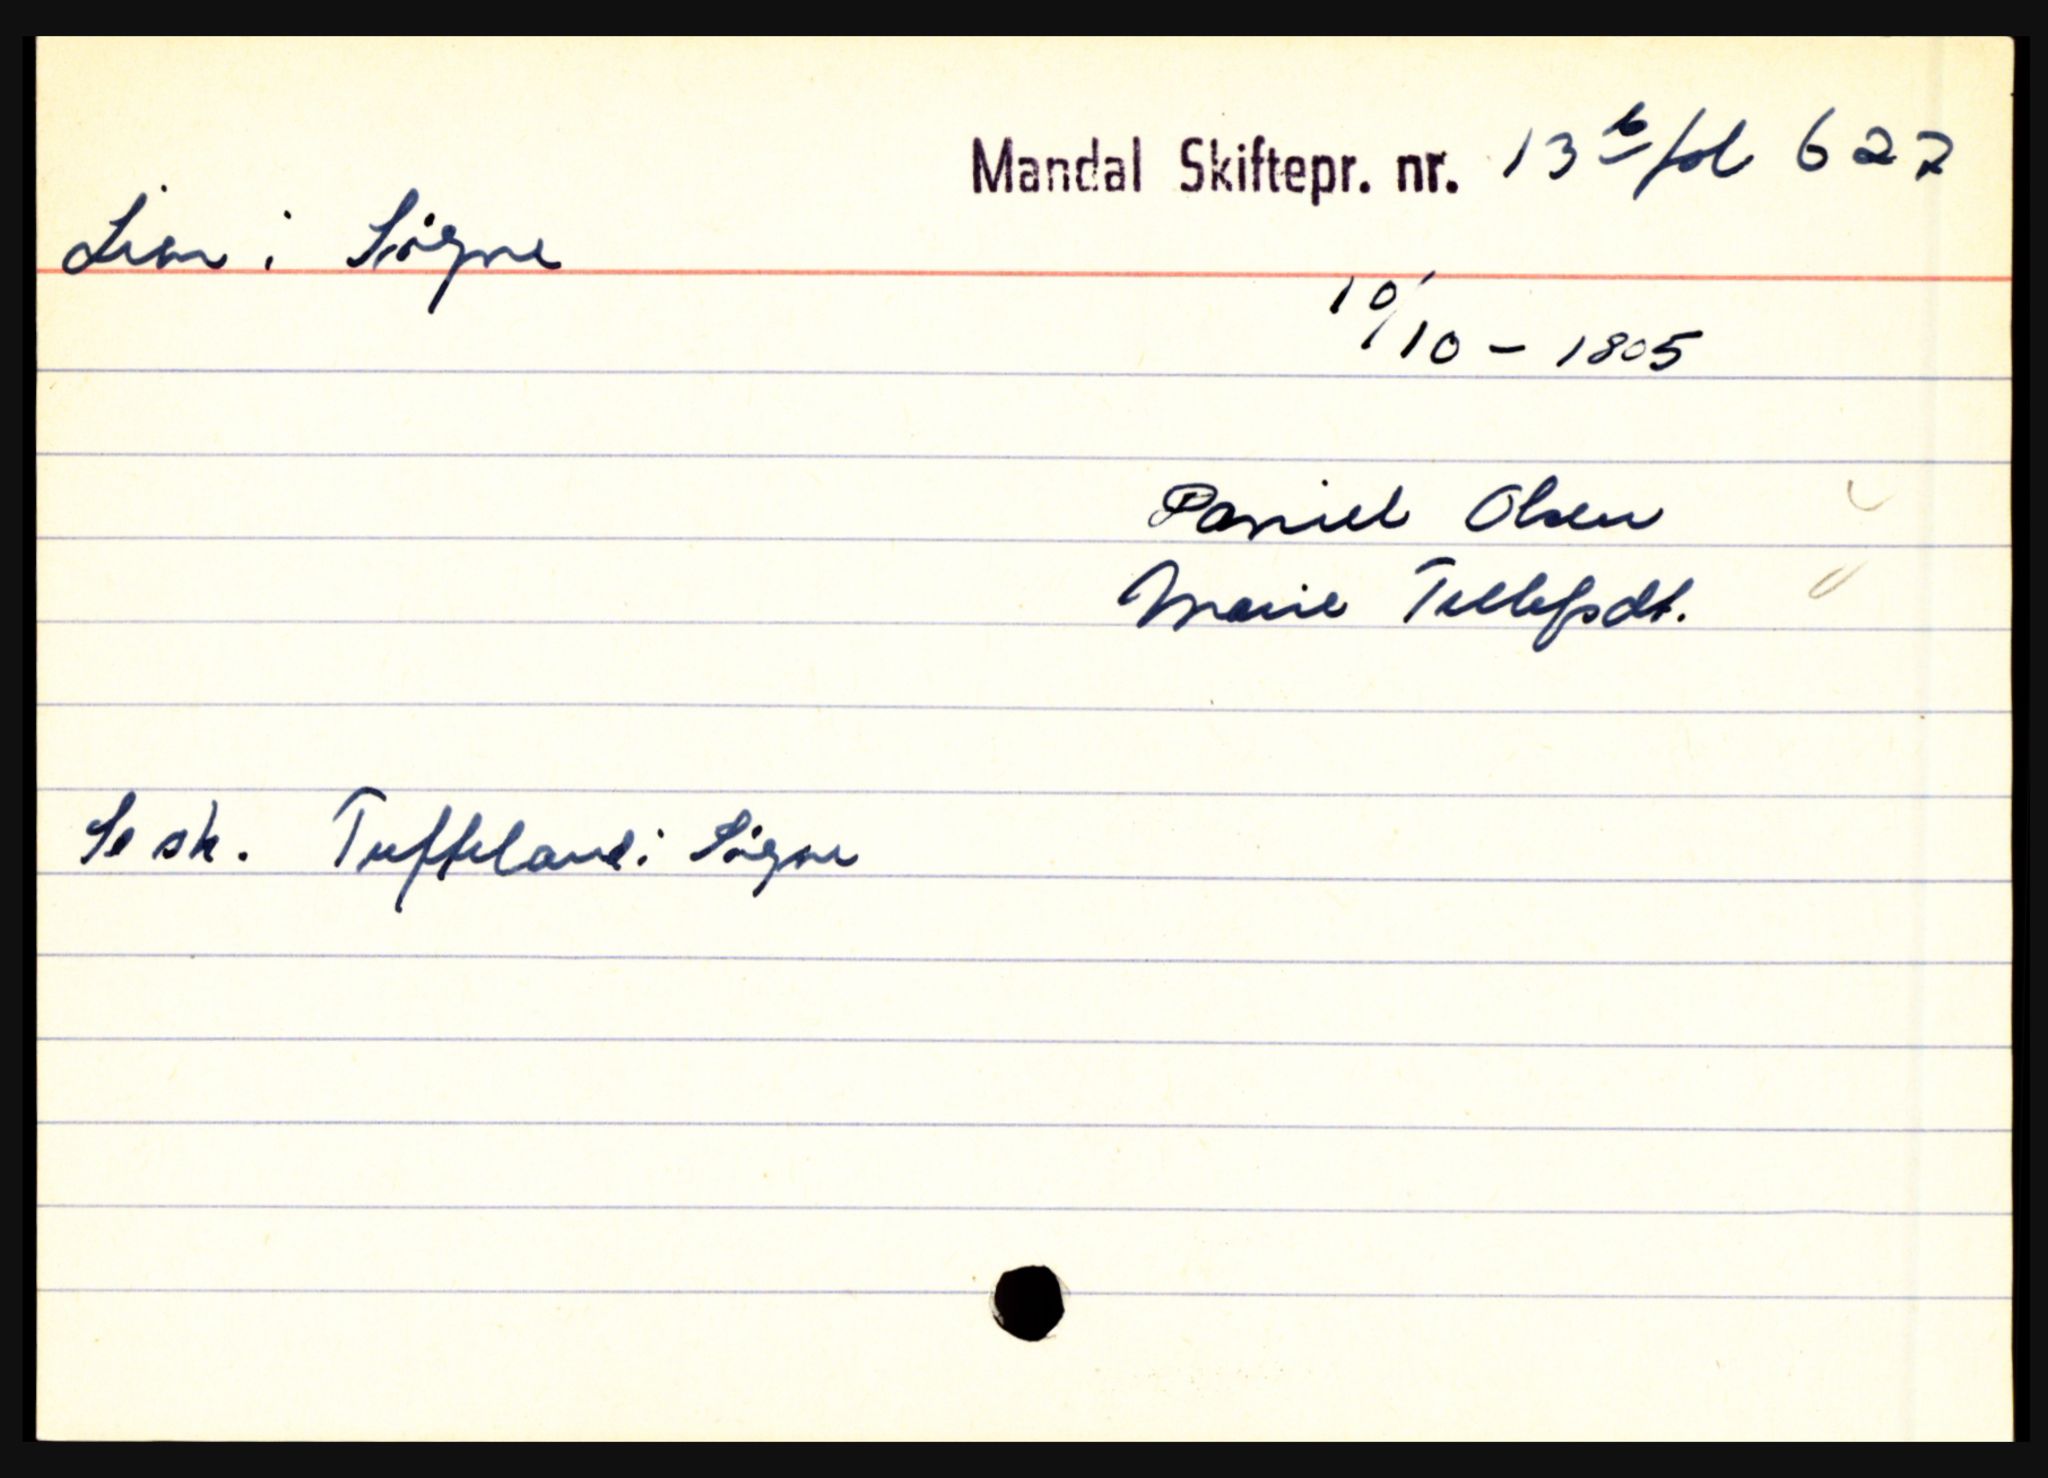 Mandal Skiftepr. nr. 13 b fol 627
Lian i Søgne
10/10 - 1805
Daniel Olsen
Marie Tellefsdt.
Se sk. Tuffeland i Søgne